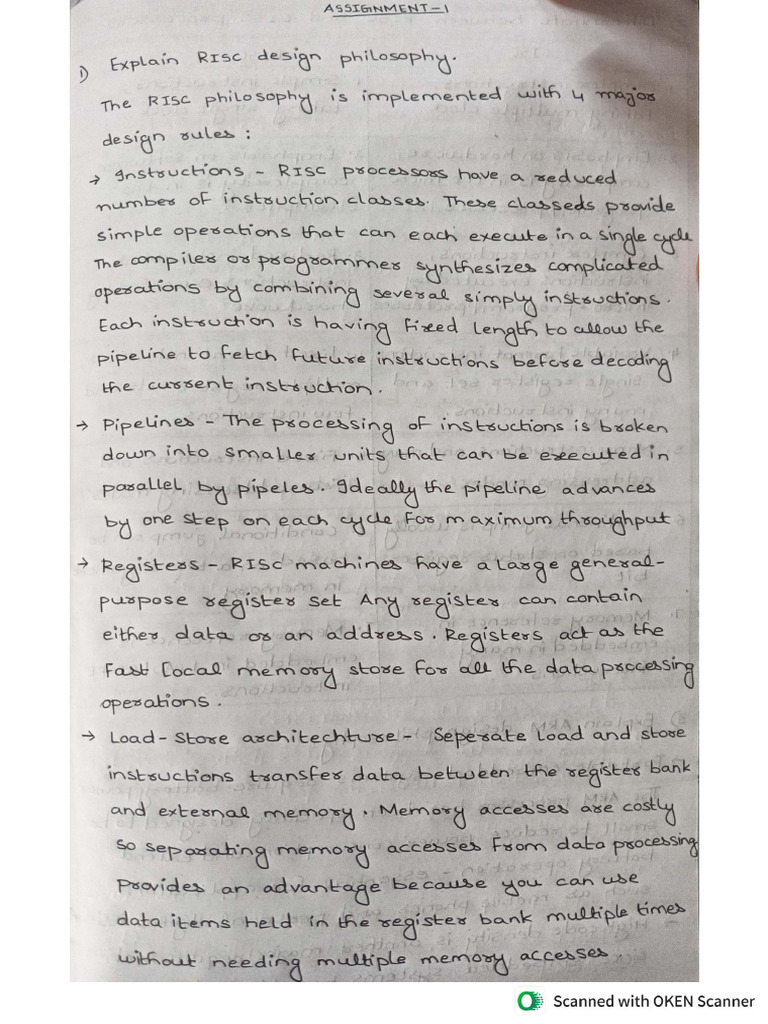 ASSIGNMENT-1
1) Explain RISC design philosophy.
The RISC philosophy is implemented with 4 major
design rules :
→ Instructions - RISC processors have a reduced
number of instruction classes. These classeds provide
simple operations that can each execute in a single cycle
The compiler or programmer synthesizes complicated
operations by combining several simply instructions.
Each instruction is having fixed length to allow the
pipeline to fetch future instructions before decoding
the current instruction.
→ Pipelines - The processing of instructions is broken
down into smaller units that can be executed in
parallel by pipeles. Ideally the pipeline advances
by one step on each cycle for maximum throughput
→ Registers - RISC machines have a large general-
purpose register set Any register can contain
either data or an address. Registers act as the
fast local memory store for all the data processing
operations.
→ Load-Store architechture - Seperate load and store
instructions transfer data between the register bank
and external memory. Memory accesses are costly
so separating memory accesses from data processing
provides an advantage because you can use
data items held in the register bank multiple times
without needing multiple memory accesses
Scanned with OKEN Scanner